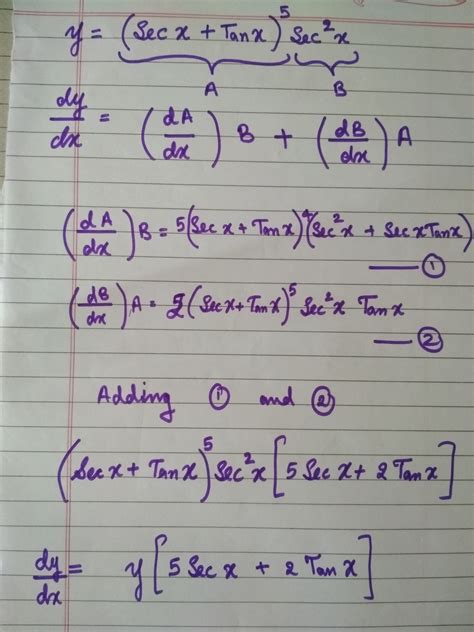 y = (Sec x + Tan x)^5 Sec^2 x
A B
dy/dx = (dA/dx) B + (dB/dx) A
(dA/dx) B = 5(Sec x + Tan x)^4 (Sec^2 x + Sec x Tan x)
— ①
(dB/dx) A = 2 (Sec x + Tan x)^5 Sec^2 x Tan x
— ②
Adding ① and ②
(Sec x + Tan x)^5 Sec^2 x [5 Sec x + 2 Tan x]
dy/dx = y [5 Sec x + 2 Tan x]